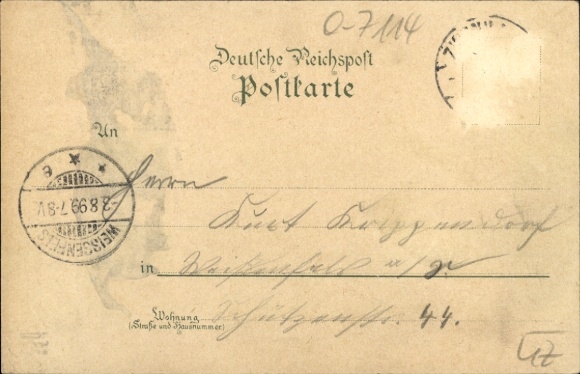 O-7114
Deutsche Reichspost
Postkarte
An
Herrn
Kurt Krippendorf
in Weißenfels a/S
Wohnung Schützenstr. 44.
(Straße und Hausnummer)
-3.8.99.7-8V.
WEISSENFELS
e